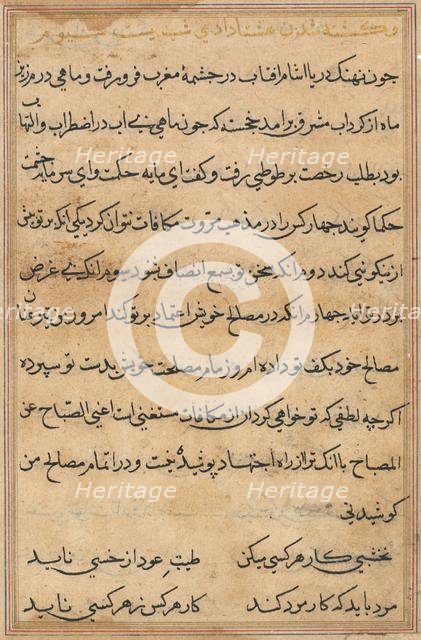 و کشته شدن شب بیست سیوم
چون نهنک دریا اشام افتاب در چشمهٔ مغرب فرو رفت و ماهی در
ماه از کرداب مشرق برامد خجسته که چون ماهی بی اب در اضطراب و التهاب
بود بطلب رخصت بر طوطی رفت و کفت ای مایهٔ حکمت و ای سرمایهٔ حشمت
حکما کویند چهار کس را در مذهب مروت مکافات نتوان کرد یکی انکه بر تو پیش
از نیکویی کند دوم انکه سخن تو بسمع انصاف شنود سیوم انک بی غرض
بر در تو اید چهارم انکه در مصالح خویش اعتماد بر تو کند امروز من چون عنان
مصالح خود بکف تو داده ام و زمام مصلحت خویش بدست تو سپرده
اکرچه لطفی که تو خواهی کرد از ان مکافات مستغنی است اغنی الصباح عن
المصباح با انک ترا از راه اجتهاد پوشیدهٔ نیست و در اتمام مصالح من
کوشیدنی
نخشبی کار هر کسی میکن طیب عود از خسی ناید
مرد باید که کار مرد کند کار هر کس ز هر کسی ناید
Heritage
Heritage
Heritage
Heritage
Heritage
Heritage